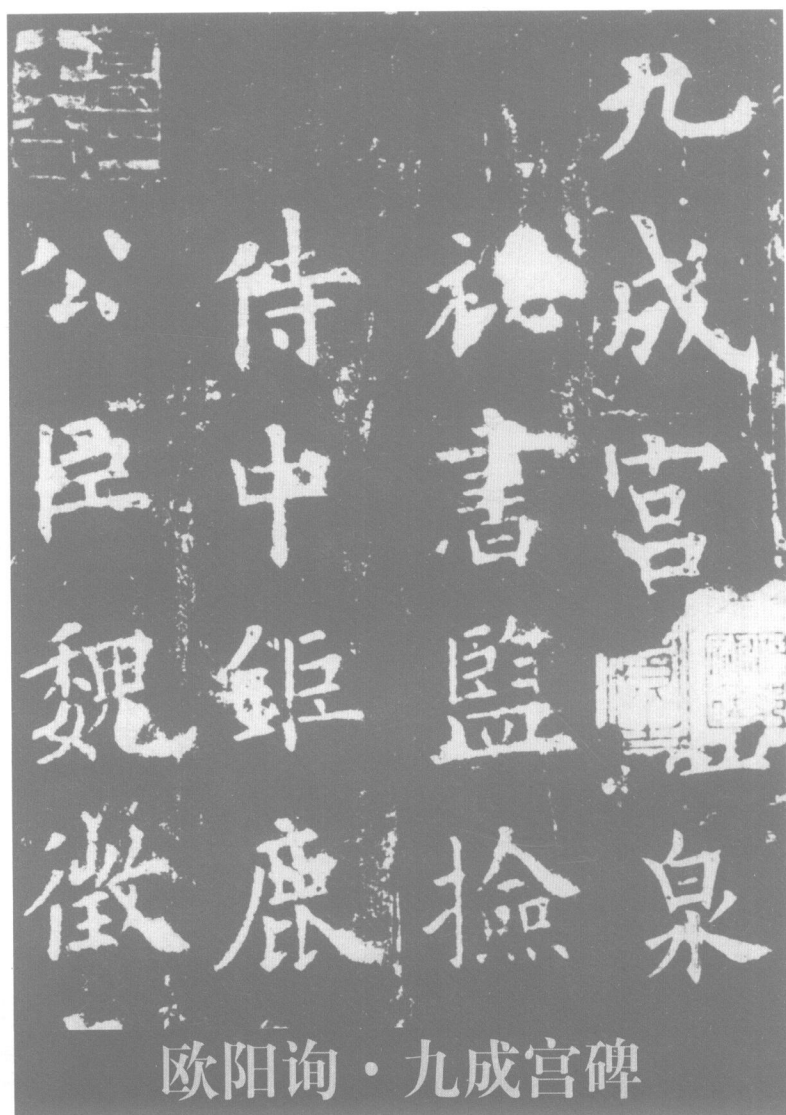 九成宫泉
祕書監撿
侍中鉅鹿
公臣魏徵
欧阳询·九成宫碑